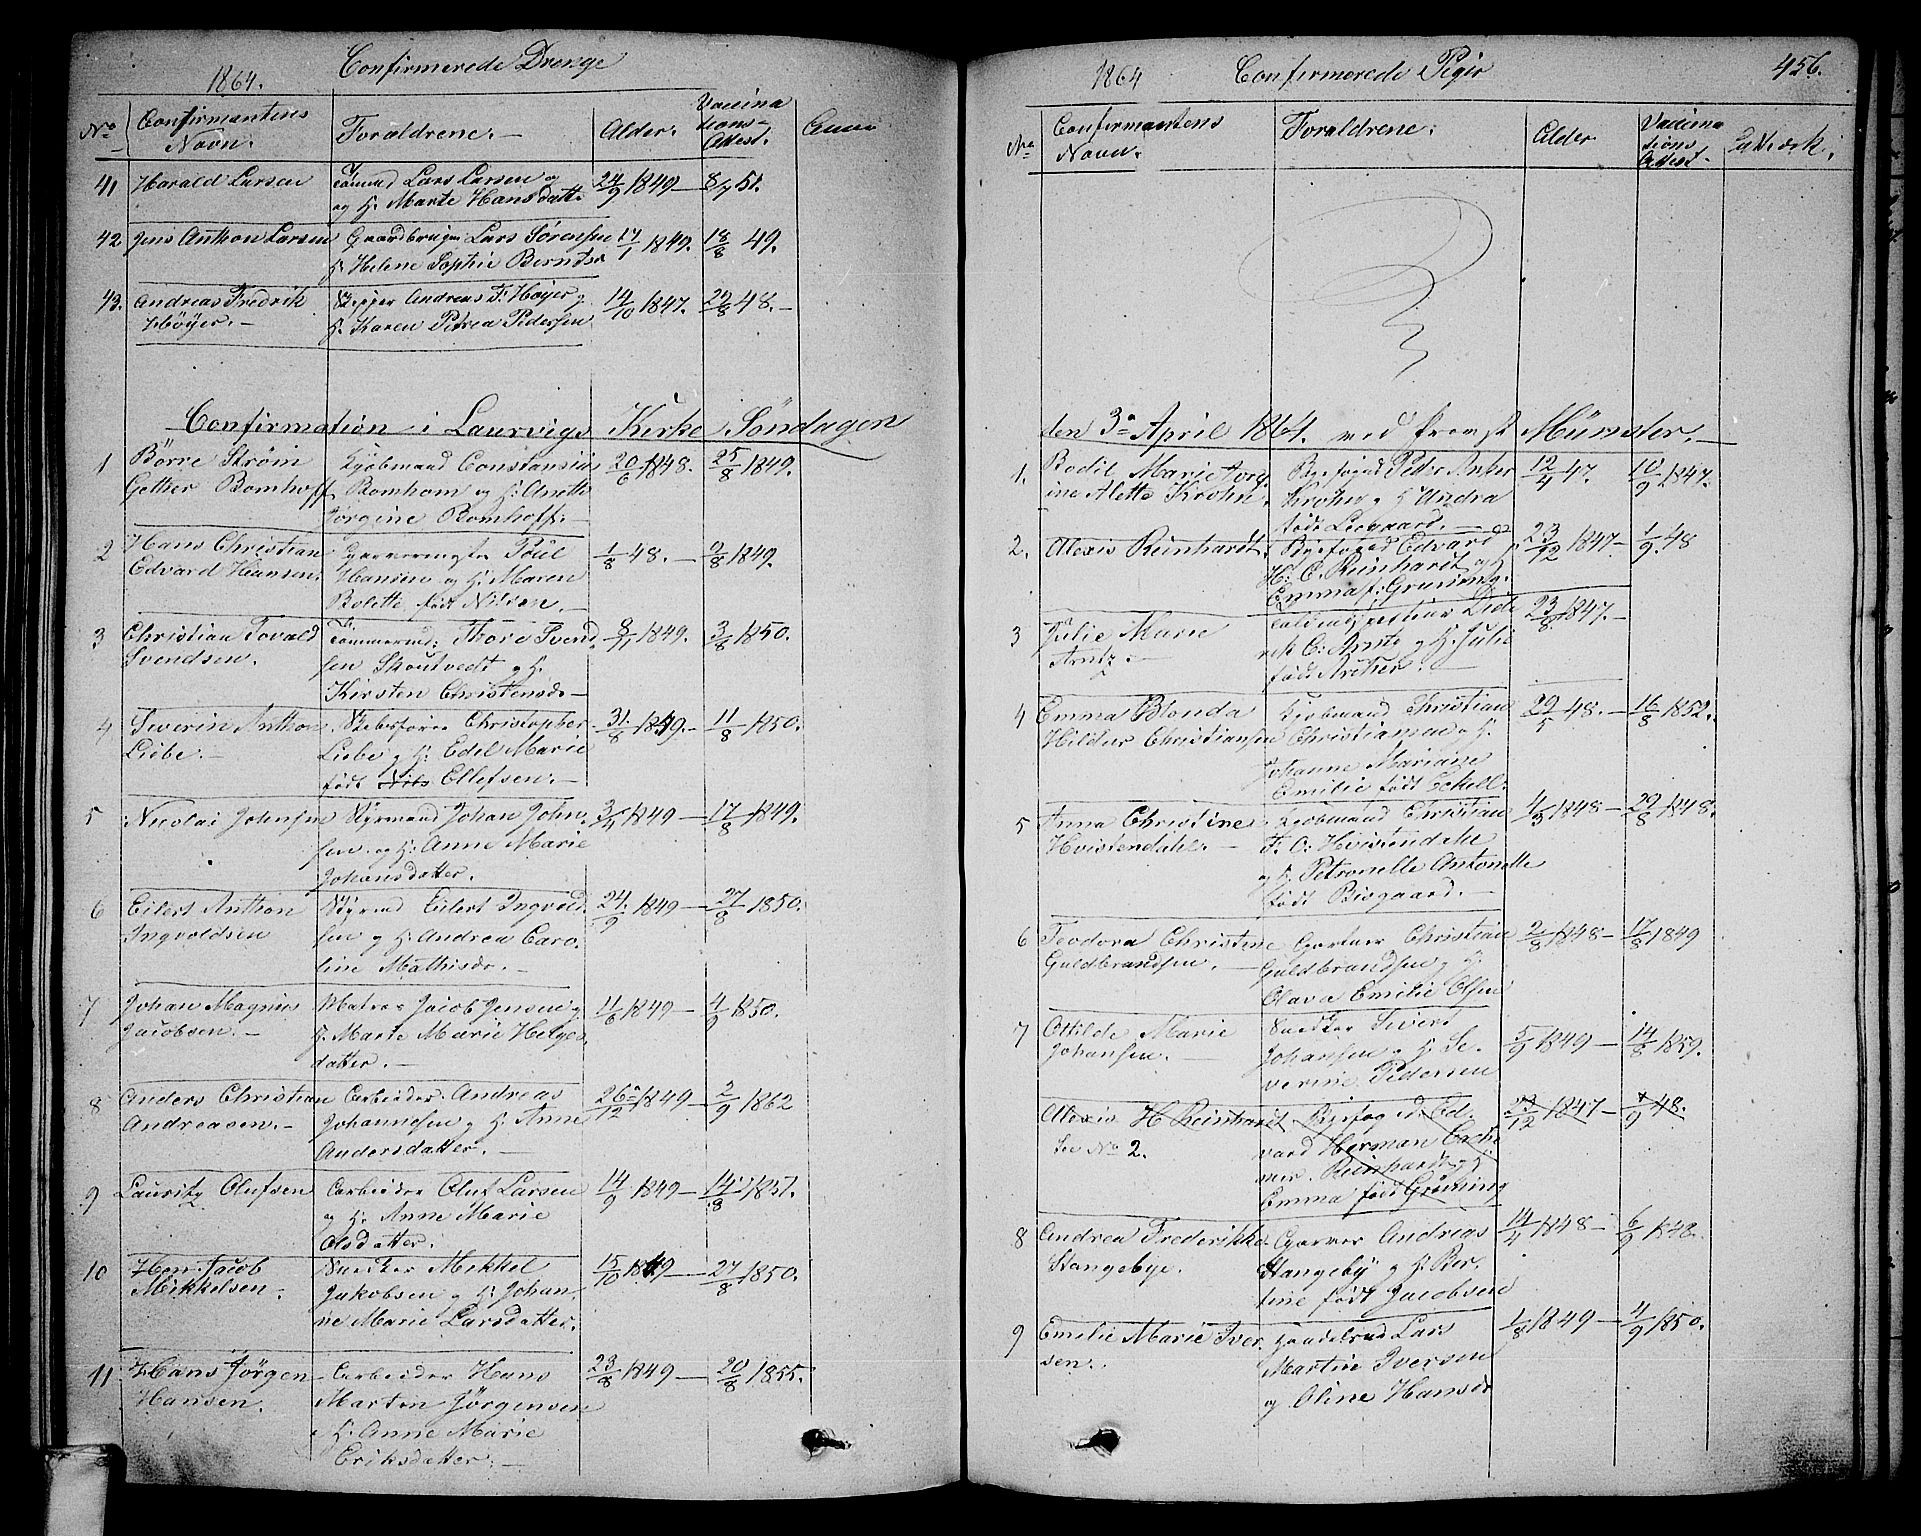 1864.
Confirmerede Drenge
No
Confirmantens
Navn.
Foraldrene. —
Alder.
Vaccina
tions-
Attest.
41 Harald Larsen
Tømmd Lars Larsen og
og H. Marte Hansdatt.
24/9 1849 — 8/7 51.
42 Jens Anthon Larsen
Gaardbruger Lars Sörensen
H. Helene Sophie Berntsd
17/1 1849. 18/8 49.
43. Andreas Fredrik
Höyer. —
Skipper Andreas F. Höyer og
H. Karen Petrea Pedersen
14/10 1847. 22/8 48. —
Confirmation i Laurvigs Kirke Söndagen
1 Börre Ström
Gether Bomhoff
Kjöbmand Constansius
Bomhom og H. Anette
Jörgine Bomhoff. —
20/6 1848. 25/8 1849.
2 Hans Christian
Edvard Hansen.
Poül
Hansen og H. Maren
Bolette født Nilsen. —
1/8 48. — 2/8 1849.
3 Christian Tovald
Svendsen.
Tømmermd: Thore Svend
sen Skoutvedt og H.
Kirsten Christensd. —
8/11 1849. 3/8 1850.
4 Severin Anthon
Liebe. —
Skibsförer Christopher
Liebe og H. Edel Marie
født Nils Ellefsen. —
31/8 1849. — 11/8 1850.
5 Nicolai Johnsen
Styrmand Johan John-
sen og H. Anne Marie
Johansdatter.
3/4 1849 — 17/8 1849.
6 Eilert Anthon
Ingvoldsen
Styrmd Eilert Ingvold
sen og H. Andrea Caro-
line Mathisd. —
24/9 1849 — 27/8 1850.
7 Johan Magnus
Jacobsen. —
Matros Jacob Jensen og
H. Marte Marie Helge-
datter. —
11/6 1849 — 4/9 1850.
8 Anders Christian
Andreasen. —
Arbeider Andreas
Johannesen og H. Anne
Andersdatter. —
26/12 1849 — 2/9 1862
9 Lauritz Olufsen
Arbeider Oluf Larsen
og H. Anne Marie
Olsdatter.
14/9 1849 — 14/8 1857.
10 Hen. Jacob
Mikkelsen.
Snedker Mikkel
Jakobsen og H. Johan-
ne Marie Larsdatter.
15/10 1849 — 27/8 1850.
11 Hans Jörgen
Hansen.
Arbeider Hans
Martin Jörgensen
H. Anne Marie
Eriksdatter. —
23/8 1849 — 20/8 1855.
1864
Confirmerede Piger
456.
No
Confirmantens
Navn.
Foraldrene.
Alder
Vaccina
tions
Attest.
den 3 April 1864. ved Provst Münster. —
1. Bodil Marie Jørg
ine Alette Krohn.
Byefoged Peder Anker
Krohn og H. Andra
født Leogaard. —
12/4 47. 10/9 1847.
2. Alexis Reinhardt.
Byefoged Edvard
H. C. Reinhardt og H
Emma f. Gruning.
23/12 1847 — 1/9 48
3 Julie Marie
Arntz. —
Died-
rik C. Arntz og H. Julie
født Anker. —
23/8 1847. —
4 Emma Blonda
Hildur Christiansen
Kjöbmand Christian
Christiansen og H.
Johanne Mariane
Emilie født Schell.
29/5 48. — 16/8 1852.
5 Anna Christine
Hvistendahl. —
Kjöbmand Christian
F. O. Hvistendahl
og H. Petronelle Antonette
født Bisgaard. —
4/3 1848 — 29/8 1848.
6 Teodora Christine
Guldbrandsen. —
Gartner Christian
Guldbrandsen og H.
Olava Emilie Olsen
2/8 1848 — 17/8 1849
7 Ottilde Marie
Johansen. —
Snedker Sivert
Johansen og H. Se-
verine Pedersen
5/9 1849 — 14/8 1859.
Alexis H Reinhardt
See No 2.
Byefoged Ed-
vard Herman
Reinhardt og H
Emma født Gruning
23/12 1847 — 1/9 48.
8 Andrea Frederikke
Stangebye.
Garver Andreas
Stangeby og H. Ber-
tine født Jacobsen
14/4 1848 — 6/9 1848.
9 Emilie Marie Iver-
sen.
Lars
Martin Iversen
og Oline Hansd
1/8 1849 — 4/9 1850.